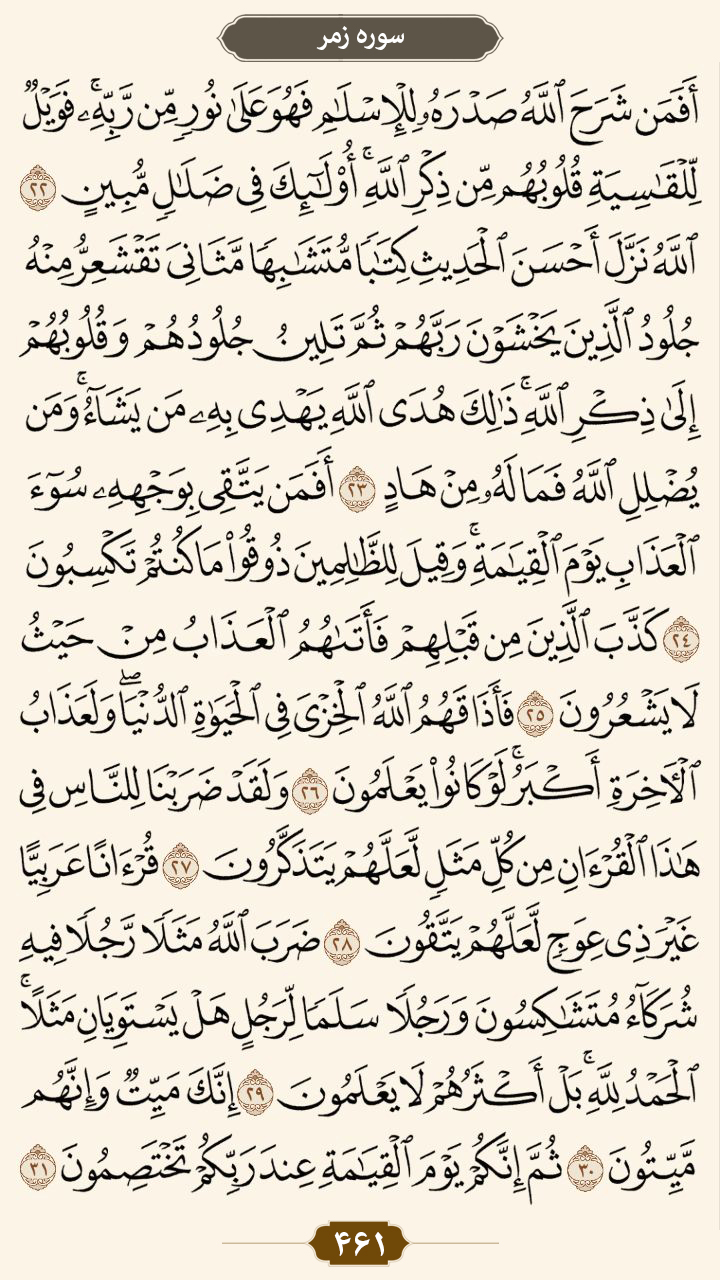 سوره زمر
أَفَمَن شَرَحَ ٱللَّهُ صَدْرَهُۥ لِلْإِسْلَٰمِ فَهُوَ عَلَىٰ نُورٍ مِّن رَّبِّهِۦۚ فَوَيْلٌ
لِّلْقَٰسِيَةِ قُلُوبُهُم مِّن ذِكْرِ ٱللَّهِۚ أُوْلَٰٓئِكَ فِى ضَلَٰلٍ مُّبِينٍ ٢٢
ٱللَّهُ نَزَّلَ أَحْسَنَ ٱلْحَدِيثِ كِتَٰبًا مُّتَشَٰبِهًا مَّثَانِىَ تَقْشَعِرُّ مِنْهُ
جُلُودُ ٱلَّذِينَ يَخْشَوْنَ رَبَّهُمْ ثُمَّ تَلِينُ جُلُودُهُمْ وَقُلُوبُهُمْ
إِلَىٰ ذِكْرِ ٱللَّهِۚ ذَٰلِكَ هُدَى ٱللَّهِ يَهْدِى بِهِۦ مَن يَشَآءُۚ وَمَن
يُضْلِلِ ٱللَّهُ فَمَا لَهُۥ مِنْ هَادٍ ٢٣ أَفَمَن يَتَّقِى بِوَجْهِهِۦ سُوٓءَ
ٱلْعَذَابِ يَوْمَ ٱلْقِيَٰمَةِۚ وَقِيلَ لِلظَّٰلِمِينَ ذُوقُوا۟ مَا كُنتُمْ تَكْسِبُونَ
٢٤ كَذَّبَ ٱلَّذِينَ مِن قَبْلِهِمْ فَأَتَىٰهُمُ ٱلْعَذَابُ مِنْ حَيْثُ
لَا يَشْعُرُونَ ٢٥ فَأَذَاقَهُمُ ٱللَّهُ ٱلْخِزْىَ فِى ٱلْحَيَوٰةِ ٱلدُّنْيَاۖ وَلَعَذَابُ
ٱلْأَخِرَةِ أَكْبَرُۚ لَوْ كَانُوا۟ يَعْلَمُونَ ٢٦ وَلَقَدْ ضَرَبْنَا لِلنَّاسِ فِى
هَٰذَا ٱلْقُرْءَانِ مِن كُلِّ مَثَلٍ لَّعَلَّهُمْ يَتَذَكَّرُونَ ٢٧ قُرْءَانًا عَرَبِيًّا
غَيْرَ ذِى عِوَجٍ لَّعَلَّهُمْ يَتَّقُونَ ٢٨ ضَرَبَ ٱللَّهُ مَثَلًا رَّجُلًا فِيهِ
شُرَكَآءُ مُتَشَٰكِسُونَ وَرَجُلًا سَلَمًا لِّرَجُلٍ هَلْ يَسْتَوِيَانِ مَثَلًاۚ
ٱلْحَمْدُ لِلَّهِۚ بَلْ أَكْثَرُهُمْ لَا يَعْلَمُونَ ٢٩ إِنَّكَ مَيِّتٌ وَإِنَّهُم
مَّيِّتُونَ ٣٠ ثُمَّ إِنَّكُمْ يَوْمَ ٱلْقِيَٰمَةِ عِندَ رَبِّكُمْ تَخْتَصِمُونَ ٣١
۴۶۱